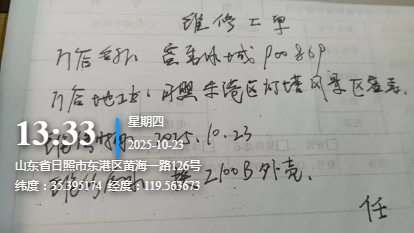 维修工单
门店名称：蜜雪冰城 P00869
门店地址：日照东港区灯塔风景区蜜雪
维修时间 2025.10.23
维修 换 2100B外壳.
任
13:33
星期四
2025-10-23
山东省日照市东港区黄海一路126号
纬度：35.395174 经度：119.563673